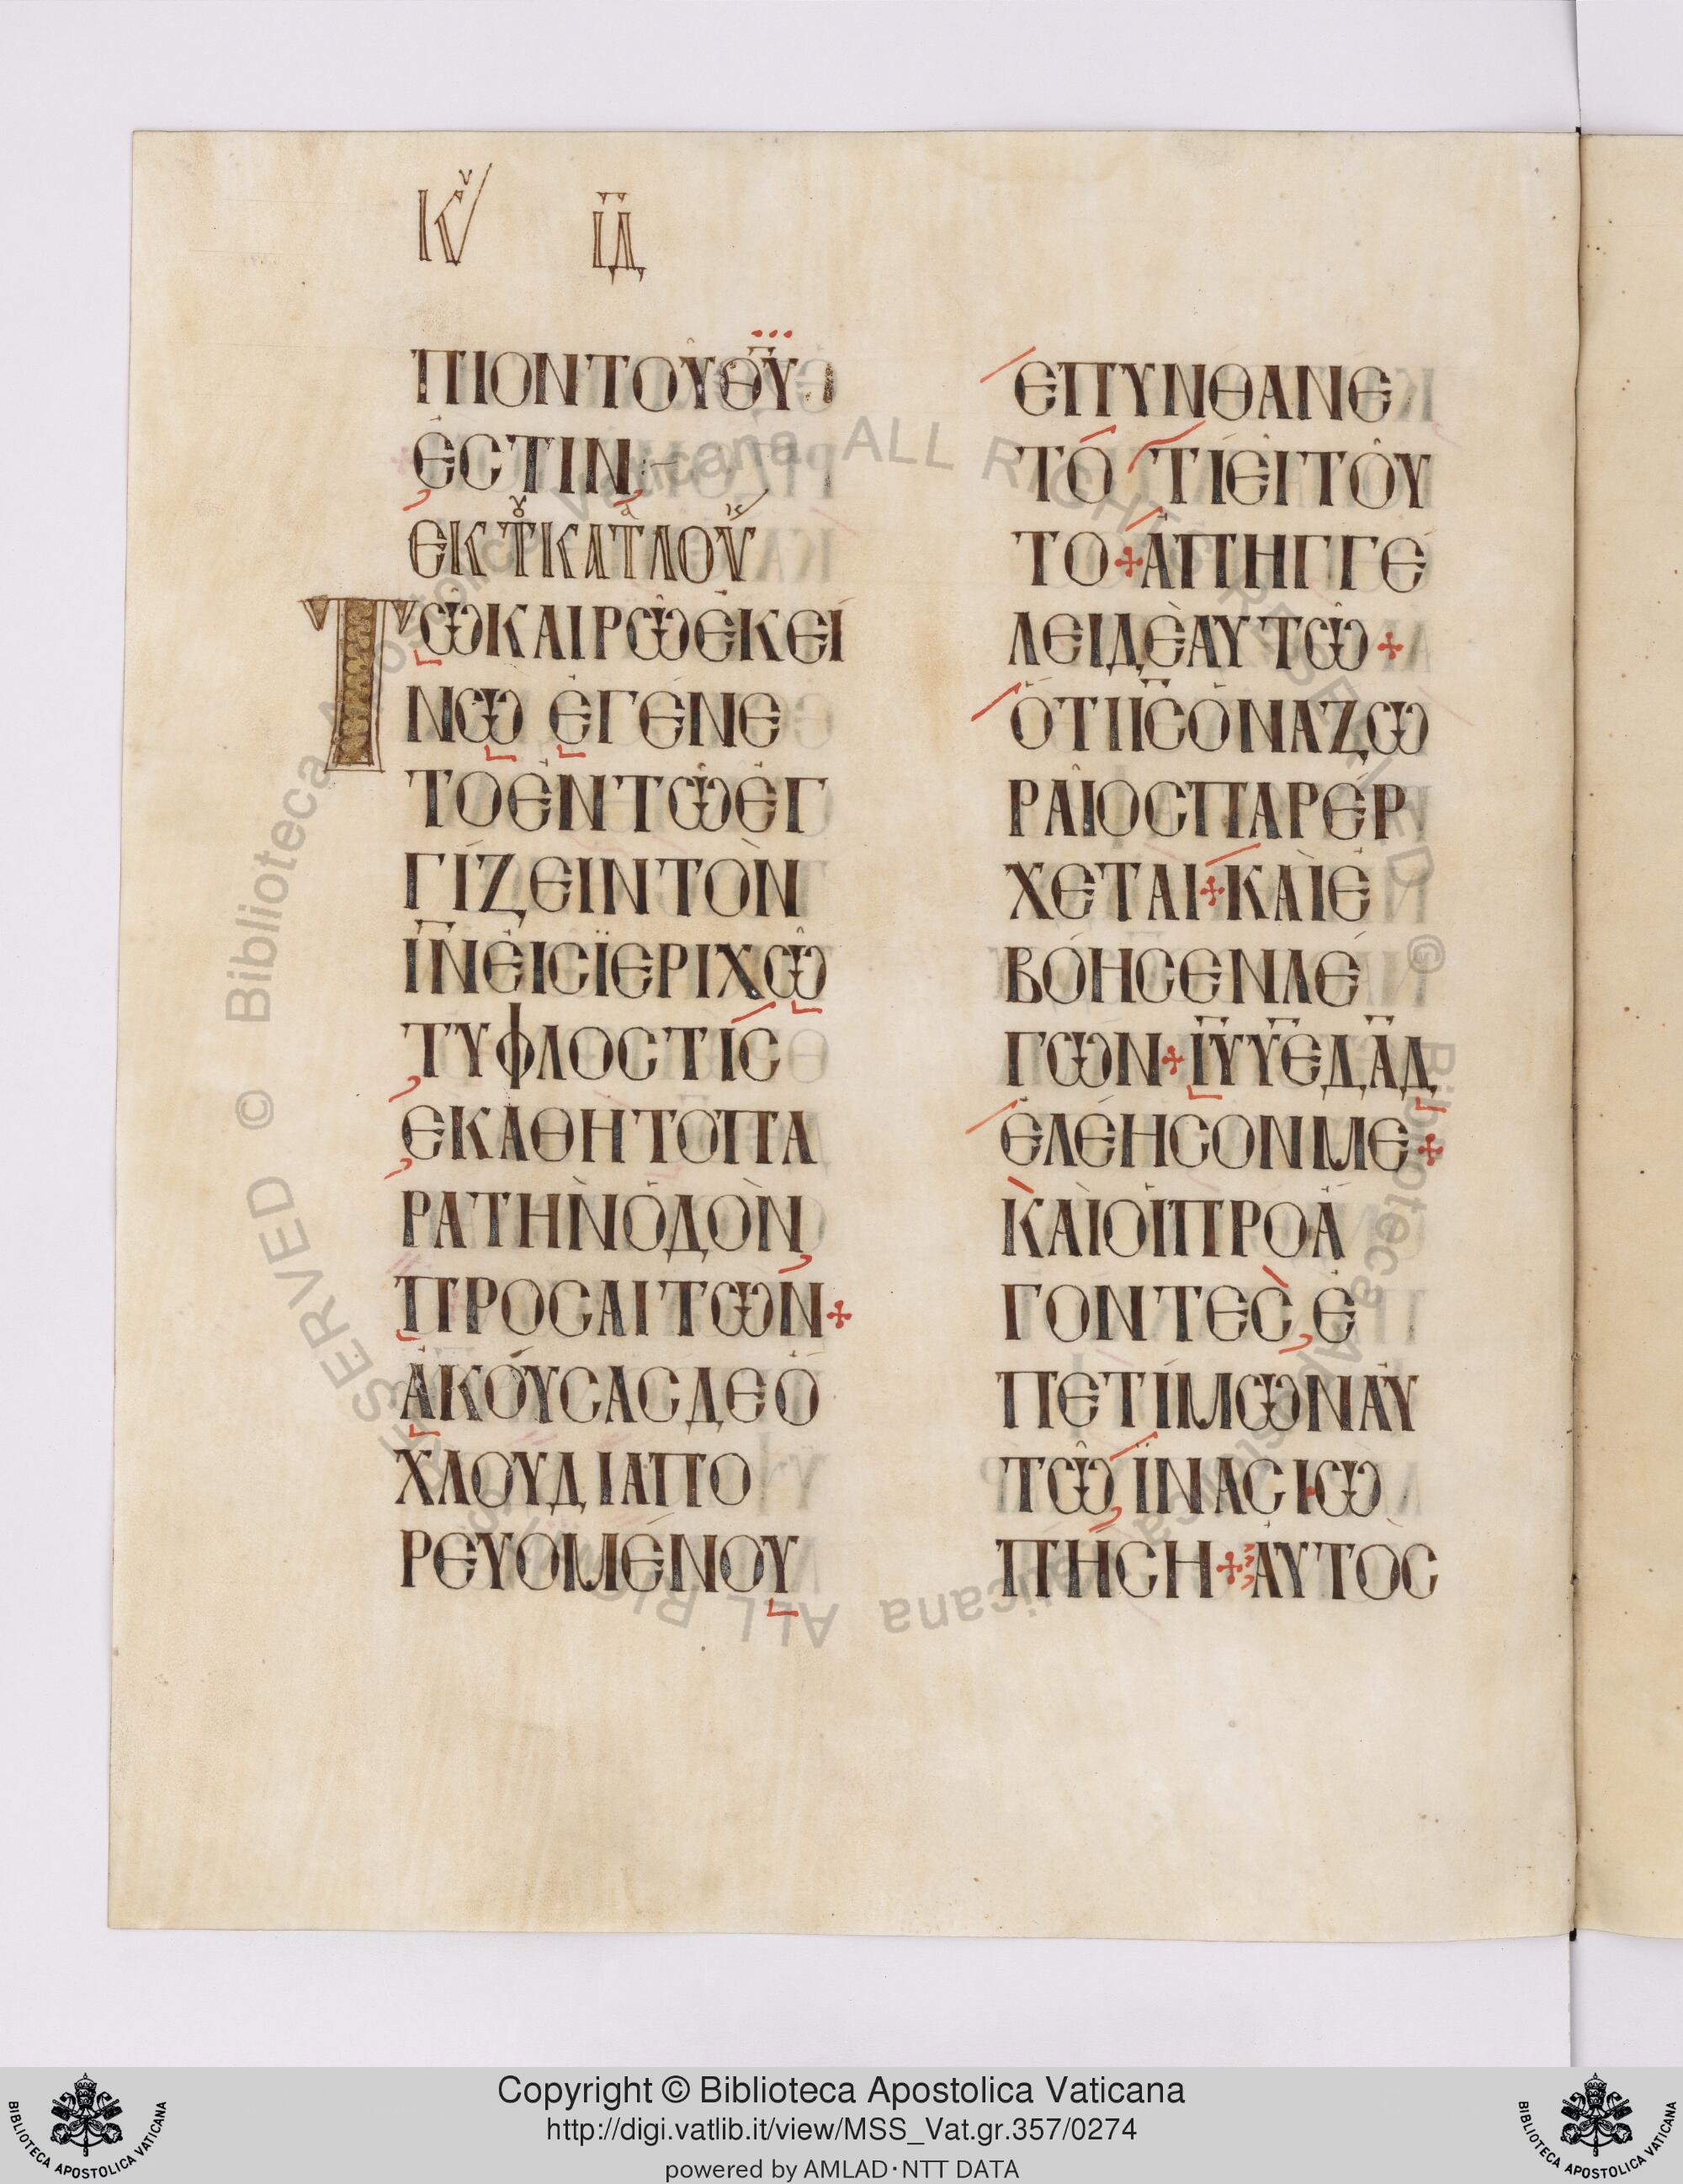 Κυ ΙΔ
ΠΙΟΝΤΟΥΘΥ
ΕϹΤΙΝ
ΕΚΤΟΥΚΑΤΑΛΟΥΚ
ΤΩΚΑΙΡΩΕΚΕΙ
ΝΩ ΕΓΕΝΕ
ΤΟΕΝΤΩΕΓ
ΓΙΖΕΙΝΤΟΝ
ΙΝΕΙϹΪΕΡΙΧΩ
ΤΥΦΛΟϹΤΙϹ
ΕΚΑΘΗΤΟΠΑ
ΡΑΤΗΝΟΔΟΝ
ΠΡΟϹΑΙΤΩΝ+
ΑΚΟΥϹΑϹΔΕΟ
ΧΛΟΥΔΙΑΠΟ
ΡΕΥΟΜΕΝΟΥ
ΕΠΥΝΘΑΝΕ
ΤΟ ΤΙΕΙΤΟΥ
ΤΟ+ΑΠΗΓΓΕ
ΛΕΙΔΕΑΥΤΩ+
ΟΤΙΙϹΟΝΑΖΩ
ΡΑΙΟϹΠΑΡΕΡ
ΧΕΤΑΙ+ΚΑΙΕ
ΒΟΗϹΕΝΛΕ
ΓΩΝ+ΙΥΥΕΔΑΔ
ΕΛΕΗϹΟΝΜΕ+
ΚΑΙΟΙΠΡΟΑ
ΓΟΝΤΕϹ,Ε
ΠΕΤΙΜΩΝΑΥ
ΤΩ,ΪΝΑϹΙΩ
ΠΗϹΗ+ΑΥΤΟϹ
Copyright © Biblioteca Apostolica Vaticana
http://digi.vatlib.it/view/MSS_Vat.gr.357/0274
powered by AMLAD·NTT DATA
BIBLIOTECA APOSTOLICA VATICANA
BIBLIOTECA APOSTOLICA VATICANA